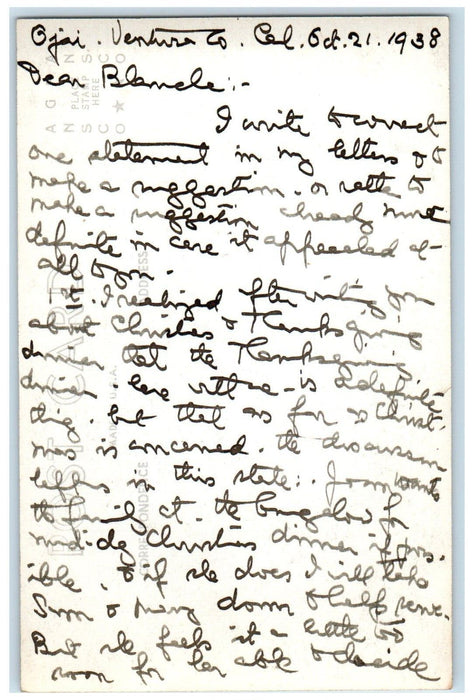 Ojai. Ventura Co. Cal. Oct. 21. 1938
Dear Blanche:-
I write to correct
one statement in my letters & to
make a suggestion, or rather to
make a suggestion already made
definite in case it appealed at
all to you.
I realized after writing you
about Christmas & Thanksgiving
dinner that the Thanksgiving
dinner here with me is a definite
thing. but that as far as Christ-
mas is concerned, the discussion
left us in this state: Joan wants
the family at the bungalow for
midday Christmas dinner if pos-
ible. & if she does I will take
& Mary down to help serve.
But she feels it a little too
soon for her able to decide
POST CARD
CORRESPONDENCE
ADDRESS
PLACE
STAMP
HERE